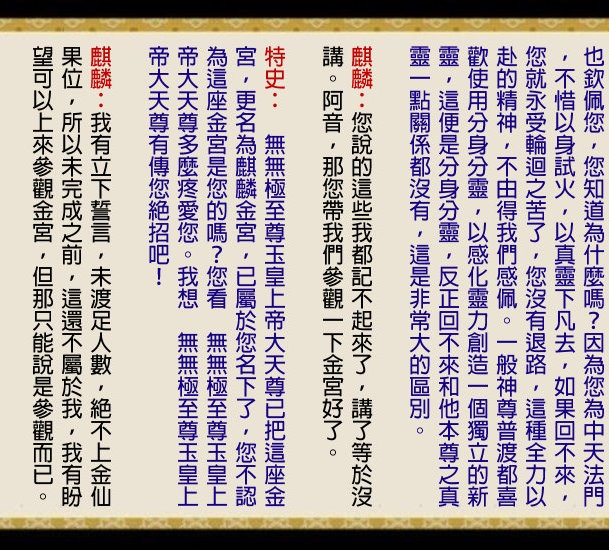 也欽佩您，您知道為什麼嗎？因為您為中天法門
，不惜以身試火，以真靈下凡去，如果回不來，
您就永受輪迴之苦了，您沒有退路，這種全力以
赴的精神，不由得我們感佩。一般神尊普渡都喜
歡使用分身分靈，以感化靈力創造一個獨立的新
靈，這便是分身分靈，反正回不來和他本尊之真
靈一點關係都沒有，這是非常大的區別。
麒麟：您說的這些我都記不起來了，講了等於沒
講。阿音，那您帶我們參觀一下金宮好了。
特史：　無無極至尊玉皇上帝大天尊已把這座金
宮，更名為麒麟金宮，已屬於您名下了，您不認
為這座金宮是您的嗎？您看　無無極至尊玉皇上
帝大天尊多麼疼愛您。我想　無無極至尊玉皇上
帝大天尊有傳您絕招吧！
麒麟：我有立下誓言，未渡足人數，絕不上金仙
果位，所以未完成之前，這還不屬於我，我有盼
望可以上來參觀金宮，但那只能說是參觀而已。